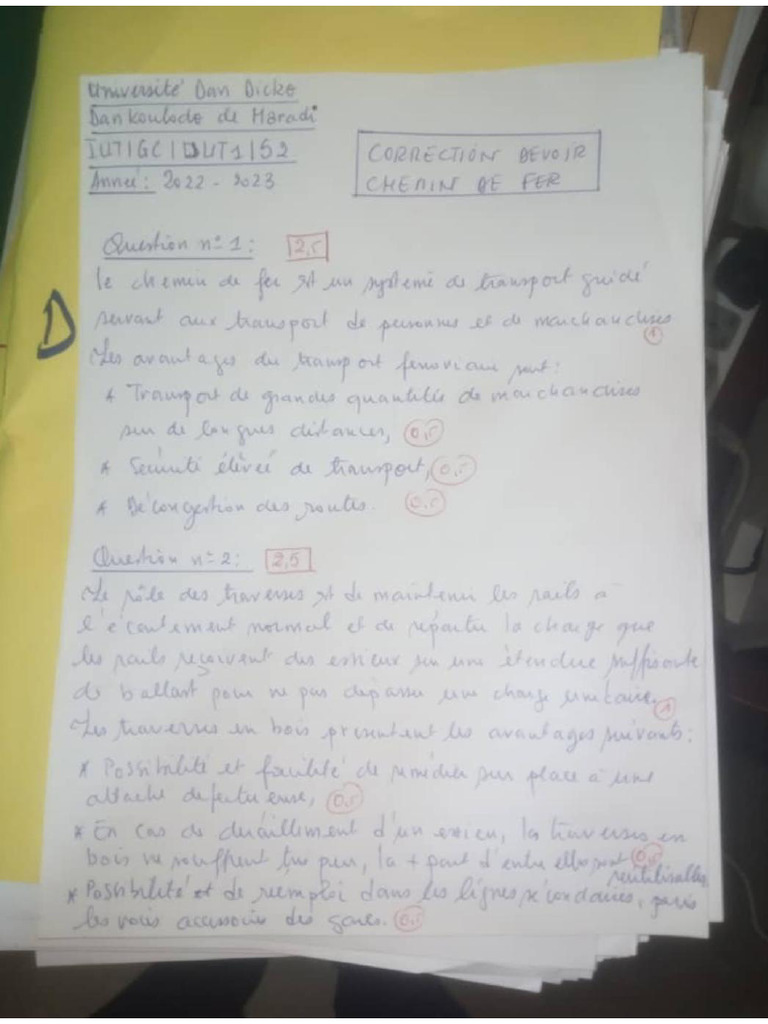 Université Dan Dicko
Dankoulodo de Maradi
IUT/GC/DUT1/S2
Année: 2022-2023
CORRECTION DEVOIR
CHEMIN DE FER
Question n° 1: 2,5
Le chemin de fer est un système de transport guidé
servant aux transport de personnes et de marchandises 1
D
Les avantages du transport ferroviaire sont:
* Transport de grandes quantités de marchandises
sur de longues distances, 0,5
* Sécurité élevée de transport, 0,5
* Décongestion des routes. 0,5
Question n° 2: 2,5
Le rôle des traverses est de maintenir les rails à
l'écartement normal et de répartir la charge que
les rails reçoivent des essieux sur une étendue suffisante
de ballast pour ne pas dépasser une charge unitaire. 1
Les traverses en bois présentent les avantages suivants:
* Possibilité et facilité de remédier sur place à une
attache defectueuse, 0,5
* En cas de déraillement d'un essieu, les traverses en
bois ne souffrent très peu, la + part d'entre elles sont 0,5
réutilisables
* Possibilité et de réemploi dans les lignes secondaires, parmi
les voies accessoires des gares. 0,5